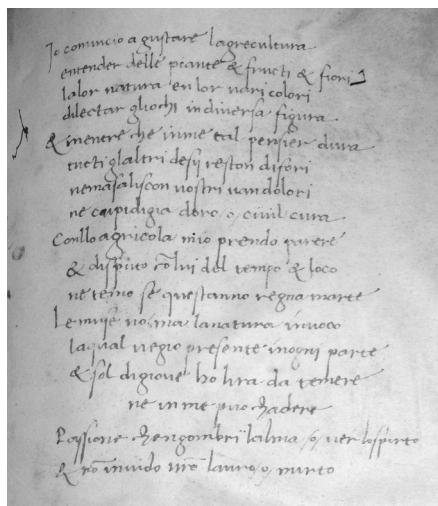 Io comincio a gustare lagrecultura
entender delle piante & fructi & fiori
lalor natura en lor vari colori
dilectar gliochi in diversa figura
& mentre che inme tal pensier dura
tucti glaltri desij reston difori
nemasaliscon vostri van dolori
ne cupidigia doro, o, civil cura
Conlloagricola mio prendo parere
& disputo cō lui del tempo & loco
ne temo se questanno regna marte
Le muse nō, ma lanatura invoco
laqual vegio presente inogni parte
& sol digiove ho lira da temere
ne in me puo chadere
Passione chengombri lalma, o, ver lospirto
& nō invido vrō lauro, o, mirto